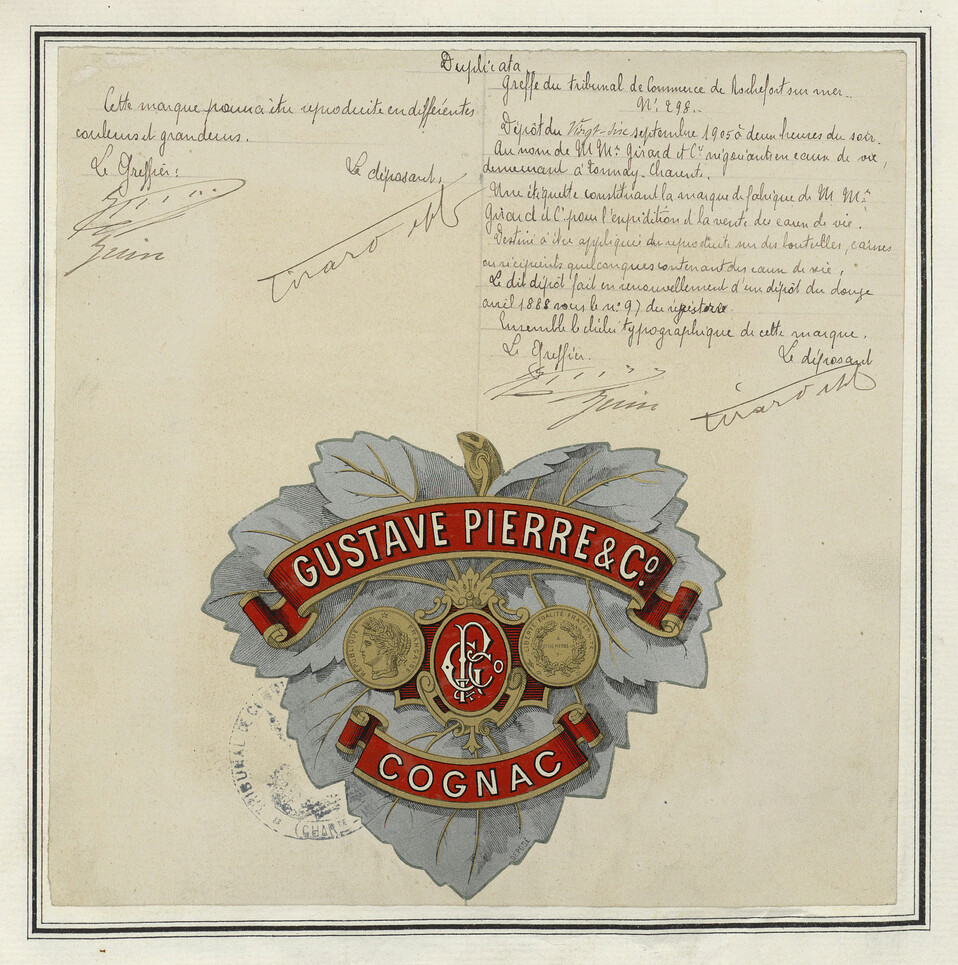 Duplicata
Cette marque pourra être reproduite en différentes
couleurs et grandeurs.
Le Greffier:
Le déposant,
Girard et Cie
Greffe du tribunal de Commerce de Rochefort sur mer.
No. 298.
Dépôt du Vingt-six septembre 1905 à deux heures du soir.
Au nom de M.Mrs Girard et Cie négociants en eaux de vie,
demeurant à Tonnay-Charente.
Une étiquette constituant la marque de fabrique de M.Mrs
Girard et Cie pour l'expédition et la vente des eaux de vie.
Destiné à être appliquée ou reproduite sur des bouteilles, caisses
ou récipients quelconques contenant des eaux de vie,
Le dit dépôt fait en renouvellement d'un dépôt du douze
avril 1888 sous le no. 97 du registre
Ensemble le cliché typographique de cette marque.
Le Greffier.
Le déposant
Girard et Cie
GUSTAVE PIERRE & Co.
RÉPUBLIQUE FRANÇAISE
LIBERTÉ ÉGALITÉ FRATERNITÉ
COGNAC
DÉPOSÉ
TRIBUNAL DE CO